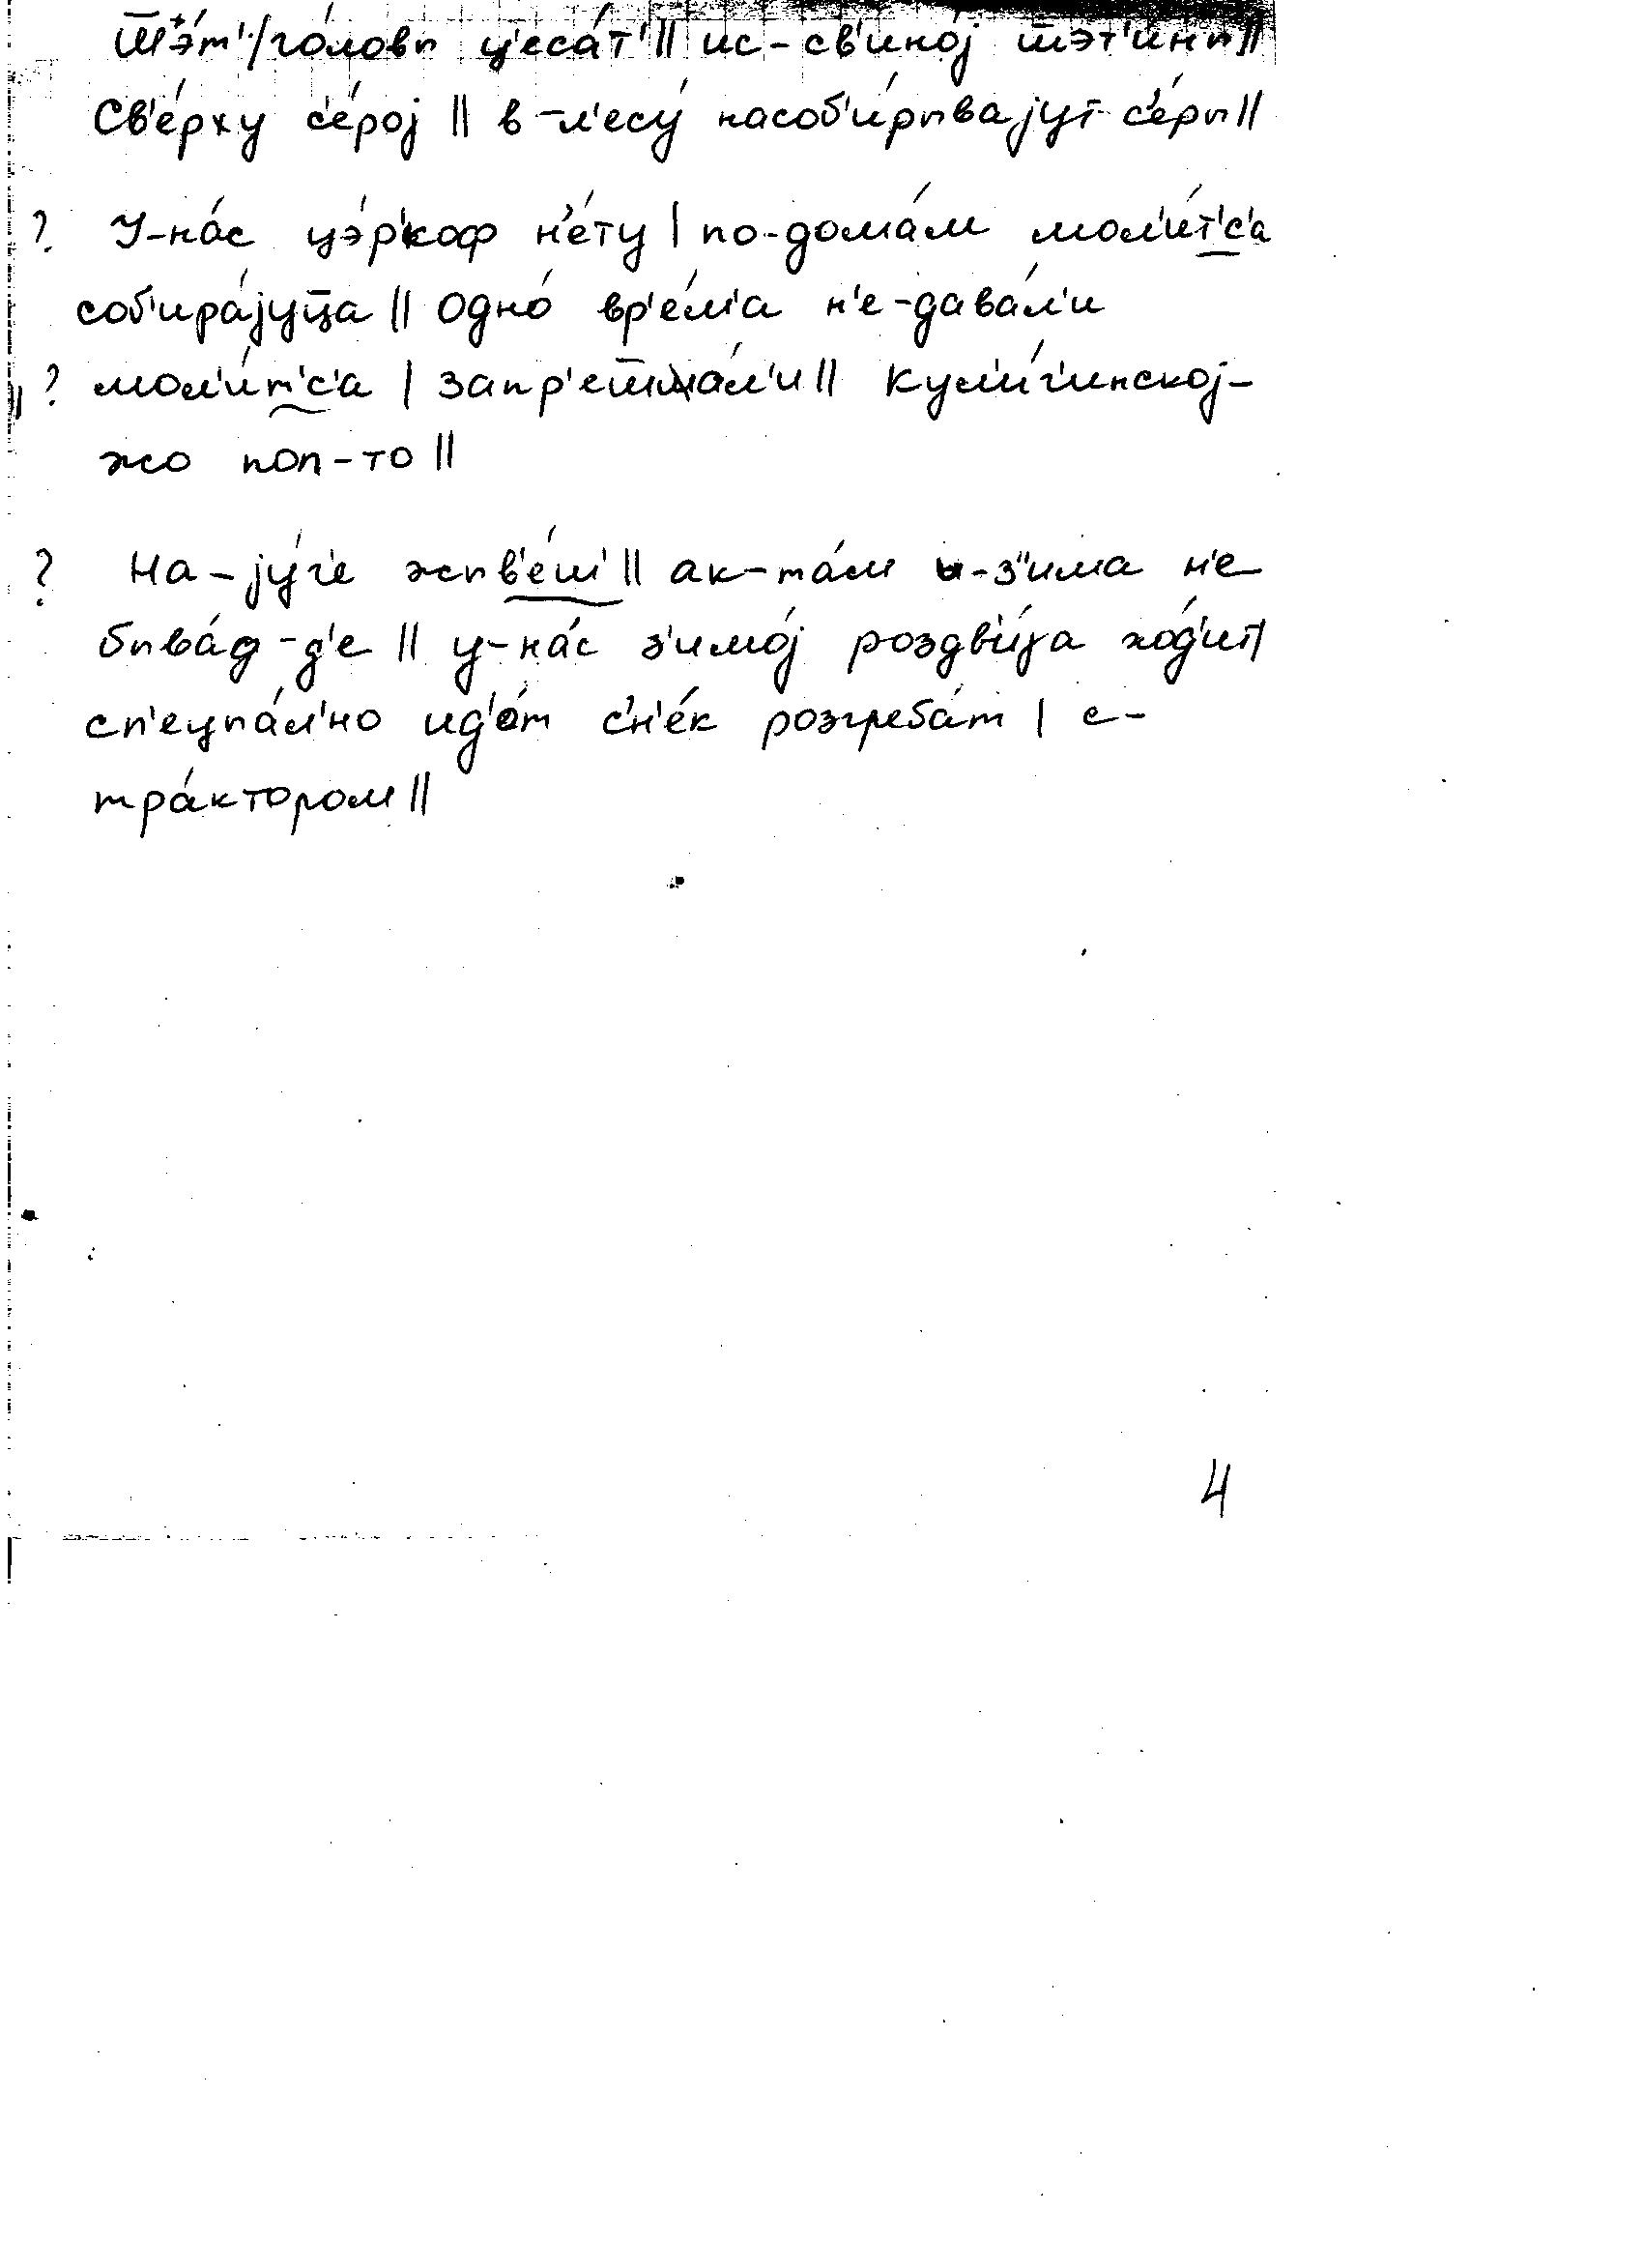 ш̅э́т'/го́ловы ц'еса́т'|| ис-св'ино́j ш̅эт'ины||
Св'е́рху с'е́роj || в-л'есу́ насоб'и́рывajут с'е́ры||
? У-на́с цэ́ркоф н'е́ту | по-дома́м мол'и́т'с'а
соб'ира́jуц̅а || Одно́ вр'е́м'а н'е-дава́л'и
|| ? мол'и́т'с'а | запр'еш̅а́л'и || Кул'и́г'инскоj-
жо поп-то ||
? На-jу́г'е жыв'е́ш' || ак-та́м и-з'има н'е
быва́д-д'е || у-на́с з'имо́j роздв'и́га хо́д'ит|
сп'ецыа́л'но ид'о́т с'н'е́к розгреба́т | с-
тра́ктором ||
4